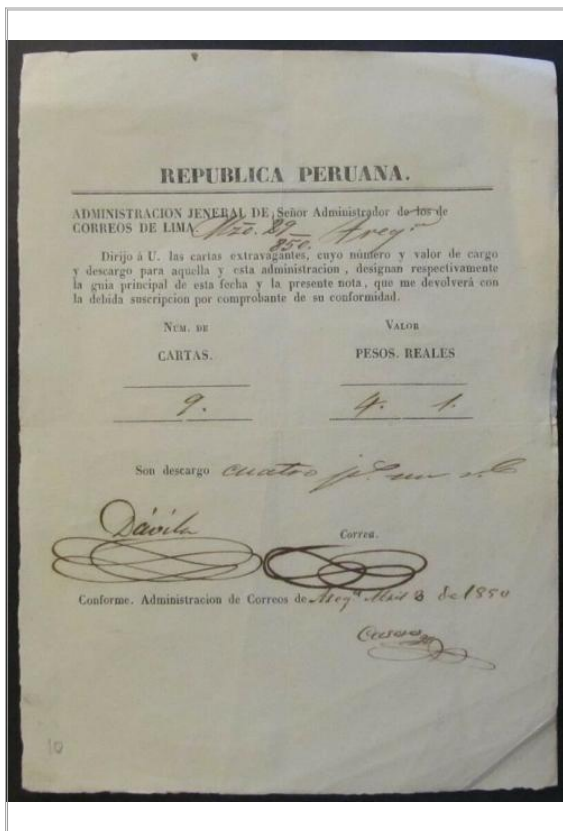 REPUBLICA PERUANA.
ADMINISTRACION JENERAL DE Señor Administrador de los de
CORREOS DE LIMA Mzo. 29 Areqa
850.
Dirijo á U. las cartas extravagantes, cuyo número y valor de cargo
y descargo para aquella y esta administracion, designan respectivamente
la guia principal de esta fecha y la presente nota, que me devolverá con
la debida suscripcion por comprobante de su conformidad.
NUM. DE VALOR
CARTAS. PESOS. REALES
9. 4. 1.
Son descargo cuatro ps. un rl
Dávila
Correa.
Conforme. Administracion de Correos de Areqa 8 de 1850
10